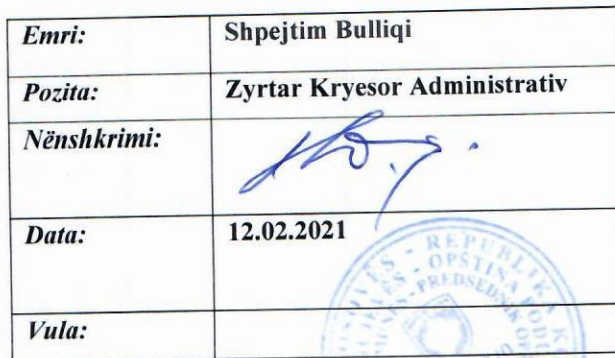 Emri: Shpejtim Bulliqi
Pozita: Zyrtar Kryesor Administrativ
Nënshkrimi:
Data: 12.02.2021
Vula:
REPUBLIKA
OPŠTINA